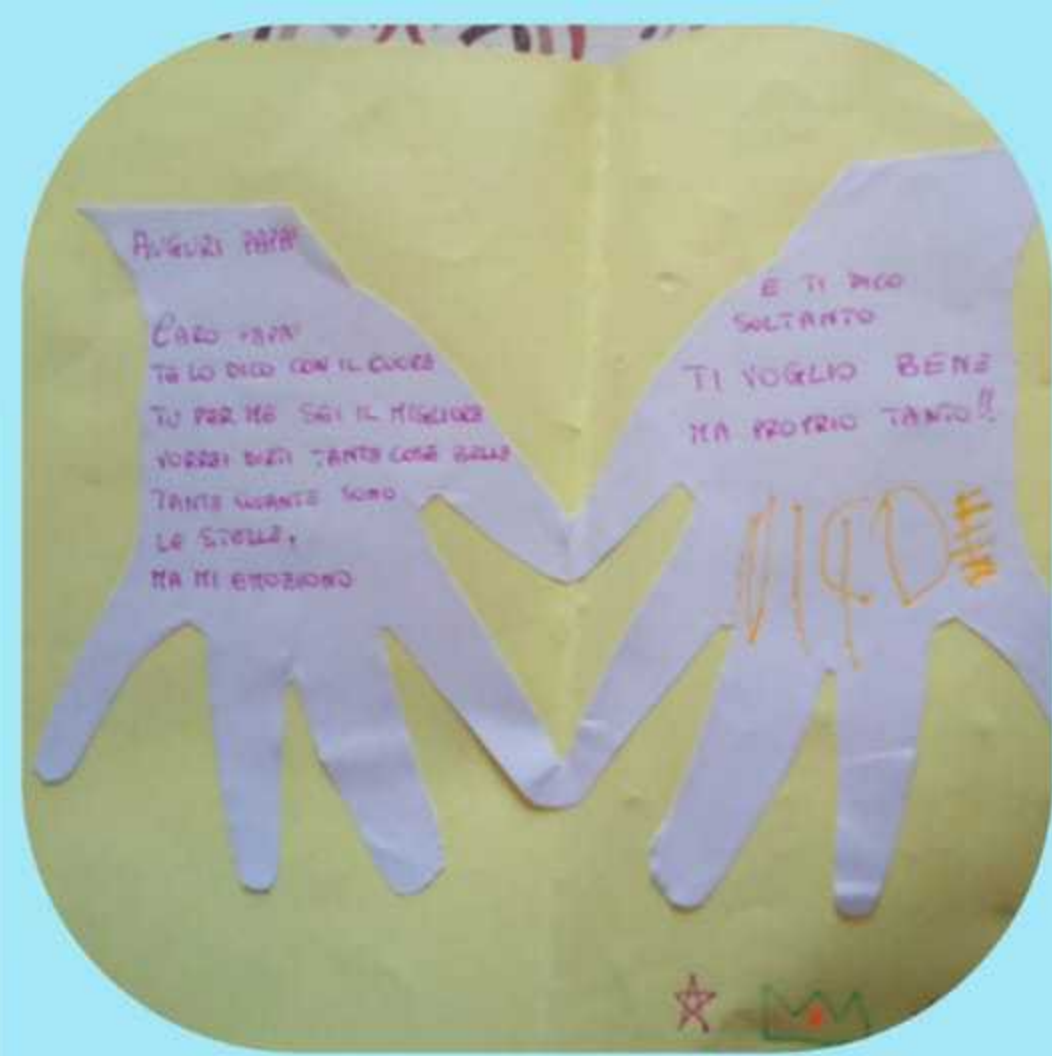 AUGURI PAPA'
CARO PAPA'
TE LO DICO CON IL CUORE
TU PER ME SEI IL MIGLIORE
VORREI DIRTI TANTE COSE BELLE
TANTE QUANTE SONO
LE STELLE,
MA MI EMOZIONO
E TI DICO
SOLTANTO
TI VOGLIO BENE
MA PROPRIO TANTO!!